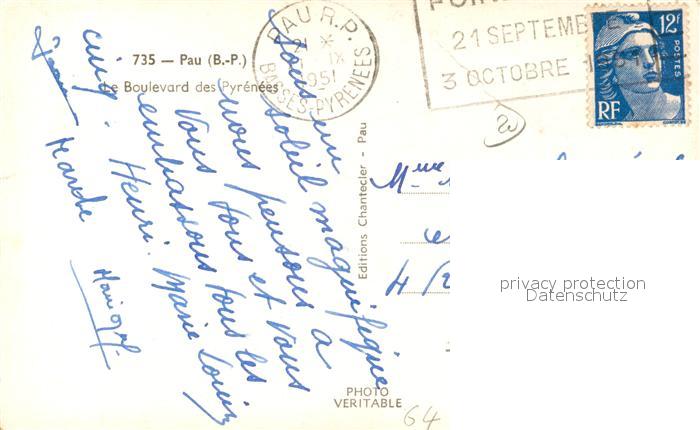 735 — Pau (B.-P.)
Le Boulevard des Pyrénées
PAU R.P.
21 * IX
1951
BASSES-PYRENEES
21 SEPTEMB
3 OCTOBRE
12F
POSTES
RF
Sous un
soleil magnifique
nous pensons à
vous tous et vous
embrassons tous les
cinq. Henri. Marie Louise
Jean
Editions Chantecler - Pau
Mme
4/2
privacy protection
Datenschutz
PHOTO
VERITABLE
64
20